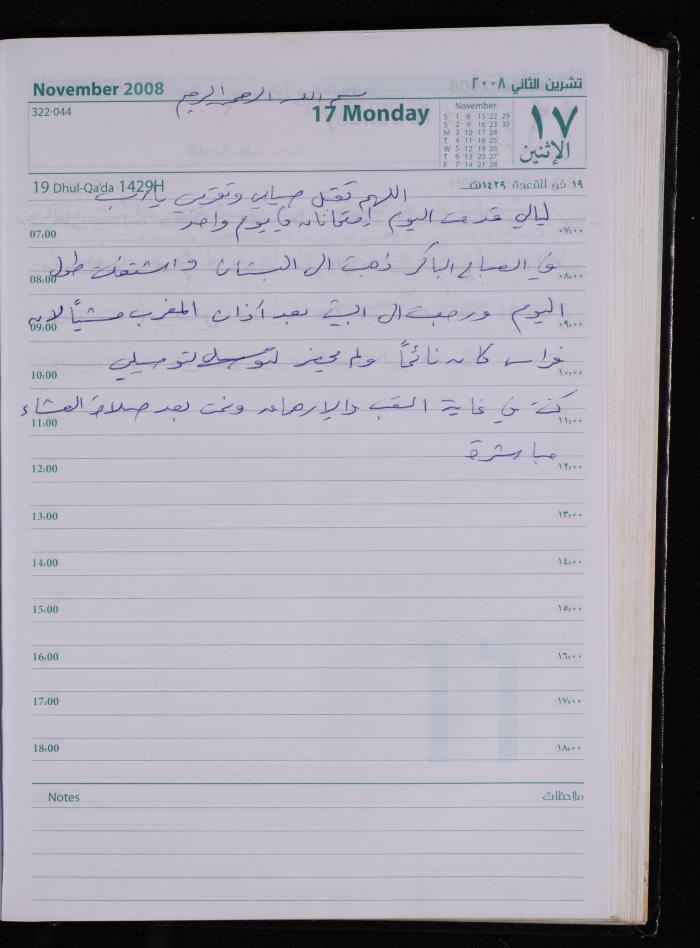 November 2008
تشرين الثاني ٢٠٠٨
بسم الله الرحمن الرحيم
322-044
17 Monday
November
S 1 8 15 22 29
S 2 9 16 23 30
M 3 10 17 24
T 4 11 18 25
W 5 12 19 26
T 6 13 20 27
F 7 14 21 28
١٧
الإثنين
19 Dhul-Qa'da 1429H
١٩ ذو القعدة ١٤٢٩هـ
اللهم تقبل صيامي وتقربي يارب
ليالي قدمت اليوم إمتحانان في يوم واحد
07:00 ٠٧:٠٠
في الصباح الباكر ذهبت الى البستان واشتغلت طول
08:00 ٠٨:٠٠
اليوم ورجعت الى البيت بعد اذان المغرب مشياً لان
09:00 ٠٩:٠٠
فراس كان نائماً ولم يحضر لتوصيلي
10:00 ١٠:٠٠
كنت في غاية التعب والإرهاق ونمت بعد صلاة العشاء
11:00 ١١:٠٠
مباشرة
12:00 ١٢:٠٠
13:00 ١٣:٠٠
14:00 ١٤:٠٠
15:00 ١٥:٠٠
16:00 ١٦:٠٠
17:00 ١٧:٠٠
18:00 ١٨:٠٠
Notes ملاحظات